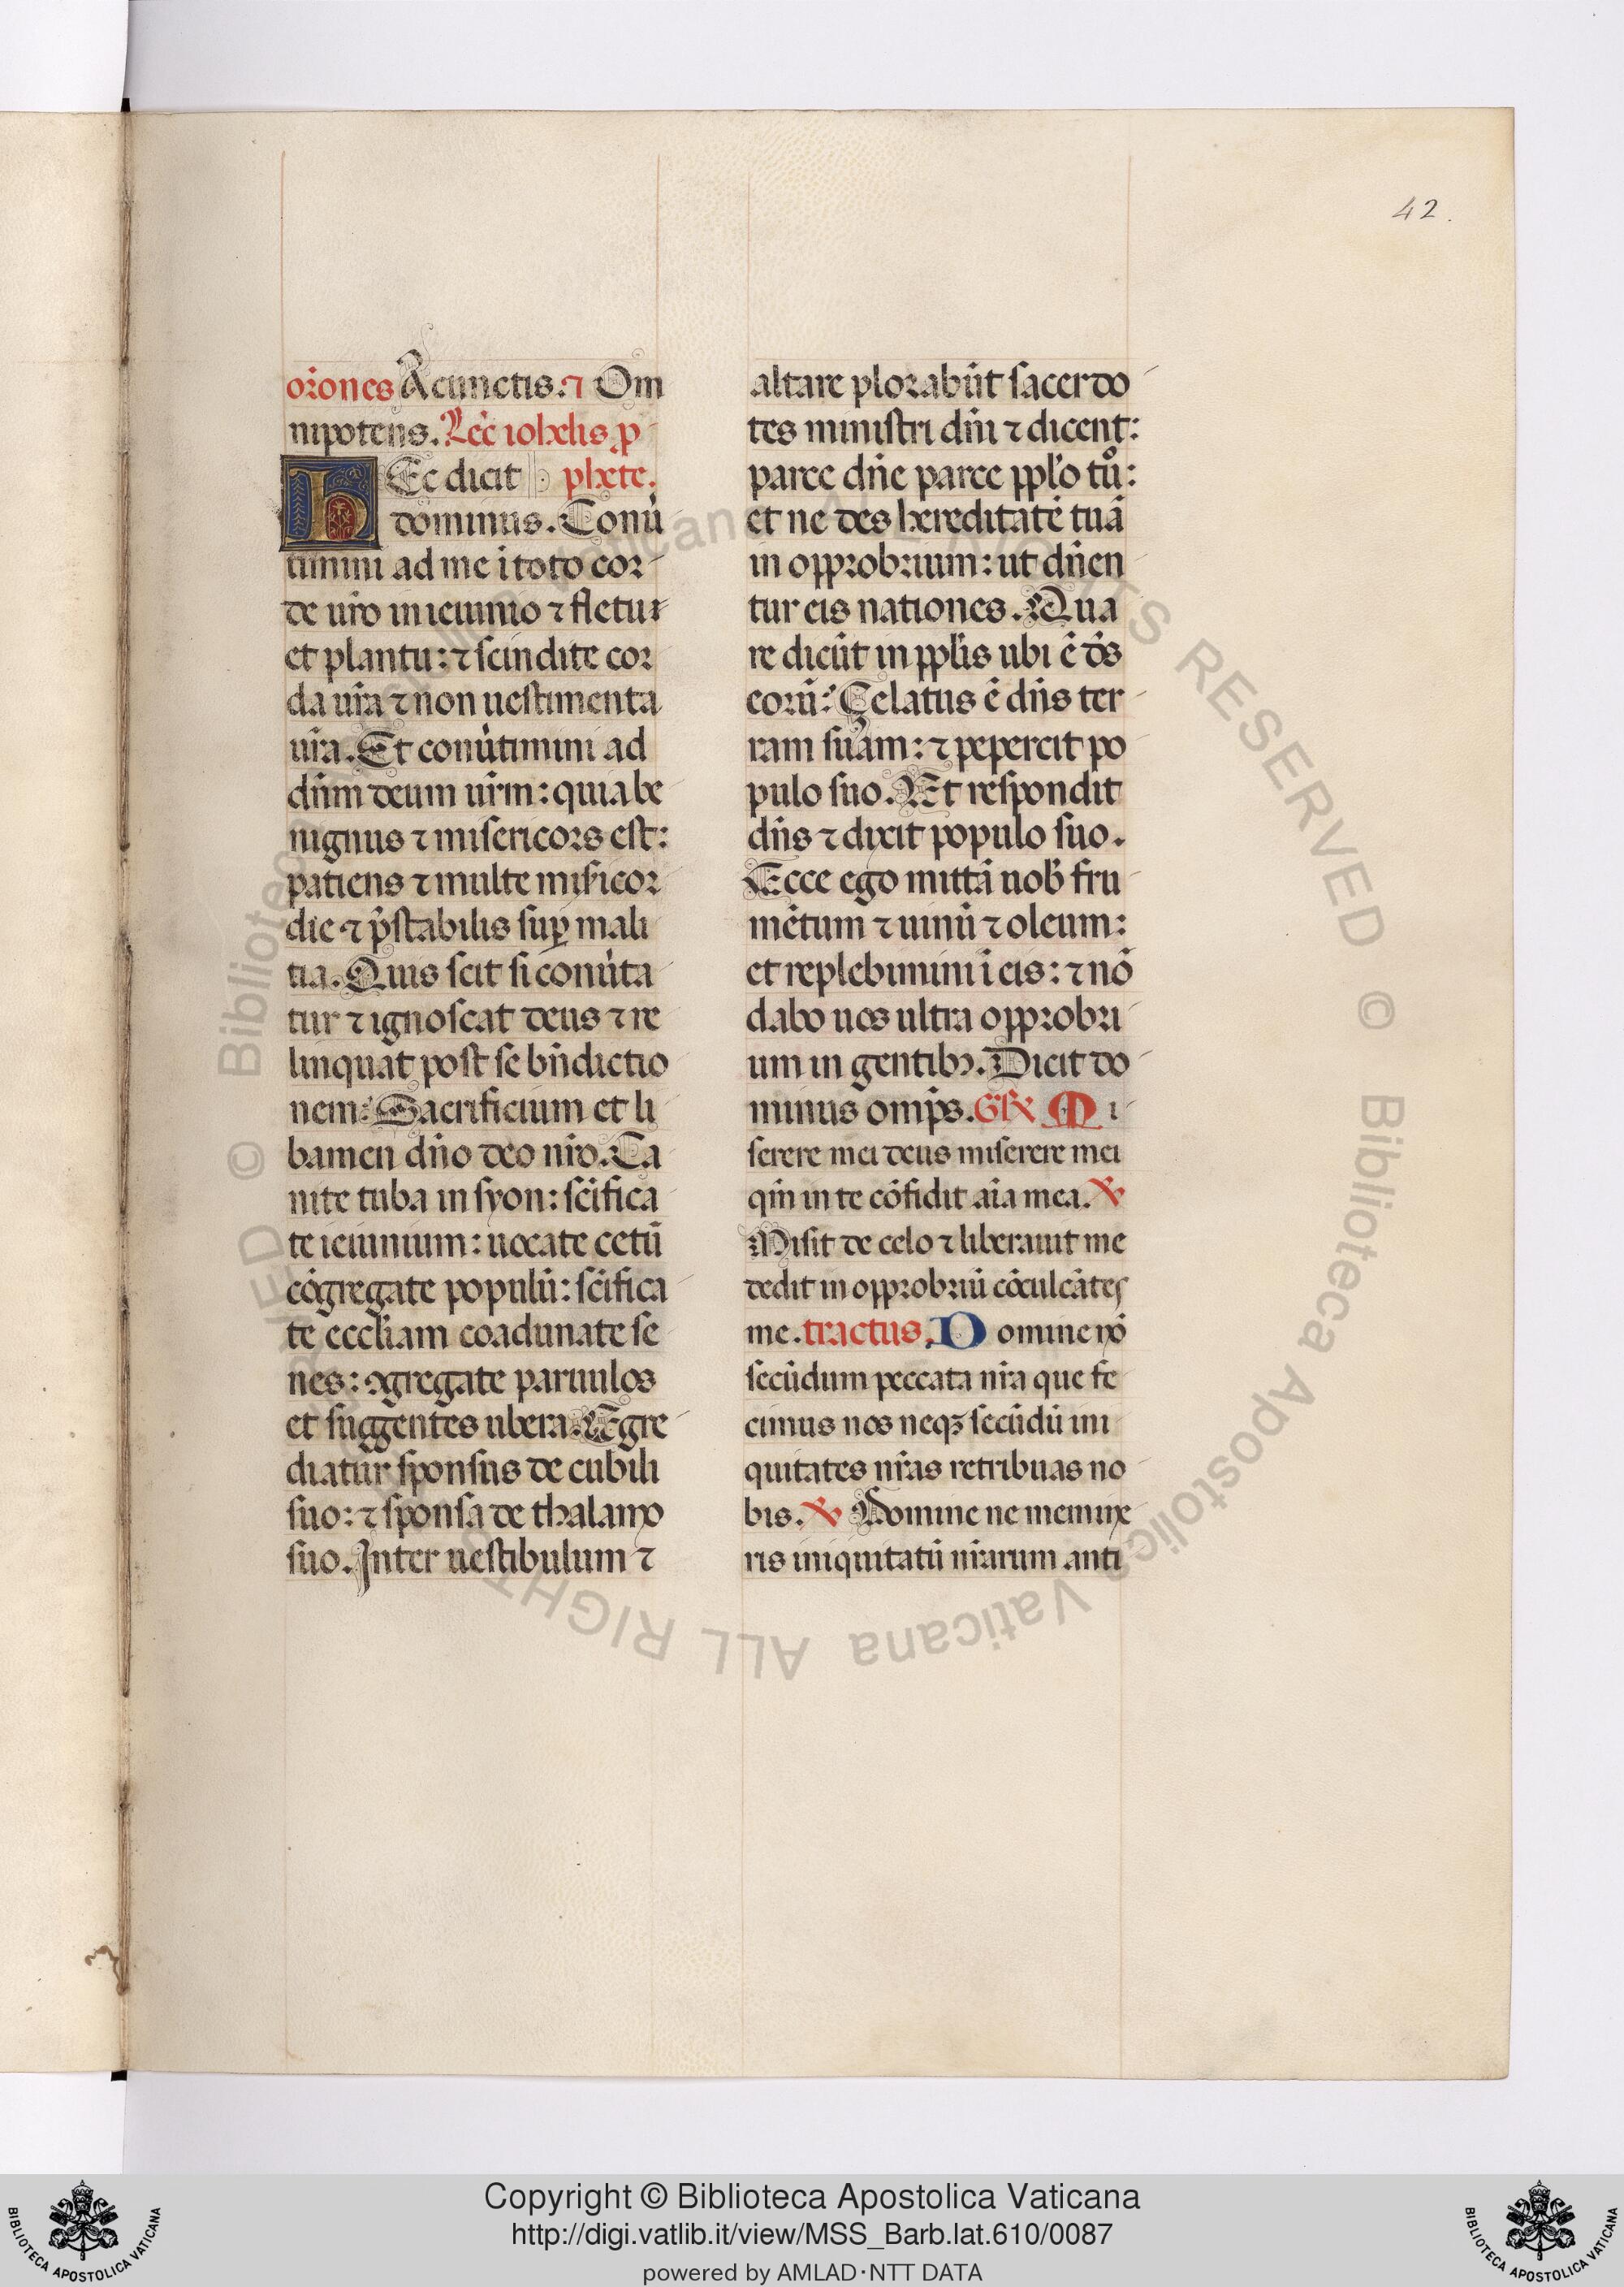 42.
or̄ones A cunctis. ⁊ Om
nipotens. Lec̄ iohelis ꝓ
HEc dicit phete.
dominus. Conũ
timini ad me ĩ toto cor
de ur̄o in ieiunio ⁊ fletu:
et planctu: ⁊ scindite cor
da ur̄a ⁊ non uestimenta
ur̄a. Et conũtimini ad
dn̄m deum ur̄m: quia be
nignus ⁊ misericors est:
patiens ⁊ multe mis̄icor
die ⁊ p̄stabilis suꝑ mali
tia. Quis scit si conũta
tur ⁊ ignoscat deus ⁊ re
linquat post se bn̄dictio
nem: Sacrificium et li
bamen dn̄o deo nr̄o. Ca
nite tuba in syon: sc̄ifica
te ieiunium: uocate cetū
cōgregate populū: sc̄ifica
te eccl̄iam coadunate se
nes: ꝯgregate paruulos
et suggentes ubera. Egre
diatur sponsus de cubili
suo: ⁊ sponsa de thalamo
suo. Inter uestibulum ⁊
altare plorabūt sacerdo
tes ministri dn̄i ⁊ dicent:
parce dn̄e parce ppl̄o tuͦ:
et ne des hereditatē tuā
in opprobrium: ut dn̄en
tur eis nationes. Qua
re dicūt in ppl̄is ubi ē ds̄
eorū: Celatus ē dn̄s ter
ram suam: ⁊ pepercit po
pulo suo. Et respondit
dn̄s ⁊ dixit populo suo.
Ecce ego mittā uob̄ fru
mētum ⁊ uinū ⁊ oleum:
et replebimini ī eis: ⁊ nō
dabo uos ultra opprobri
um in gentibꝫ. Dicit do
minus omp̄s. Gr̄ Mi
serere mei deus miserere mei
qm̄ in te cōfidit aīa mea. ℣
Misit de celo ⁊ liberauit me
dedit in opprobriū cōculcātes
me. tractus. Domine nō
secūdum peccata nr̄a que fe
cimus nos neqꝫ secūdū ini
quitates nr̄as retribuas no
bis. ℣ Domine ne memine
ris iniquitatū nr̄arum anti
© Biblioteca Apostolica Vaticana ALL RIGHTS RESERVED © Biblioteca Apostolica Vaticana ALL RIGHTS RESERVED
Copyright © Biblioteca Apostolica Vaticana
http://digi.vatlib.it/view/MSS_Barb.lat.610/0087
powered by AMLAD·NTT DATA
BIBLIOTECA APOSTOLICA VATICANA
BIBLIOTECA APOSTOLICA VATICANA